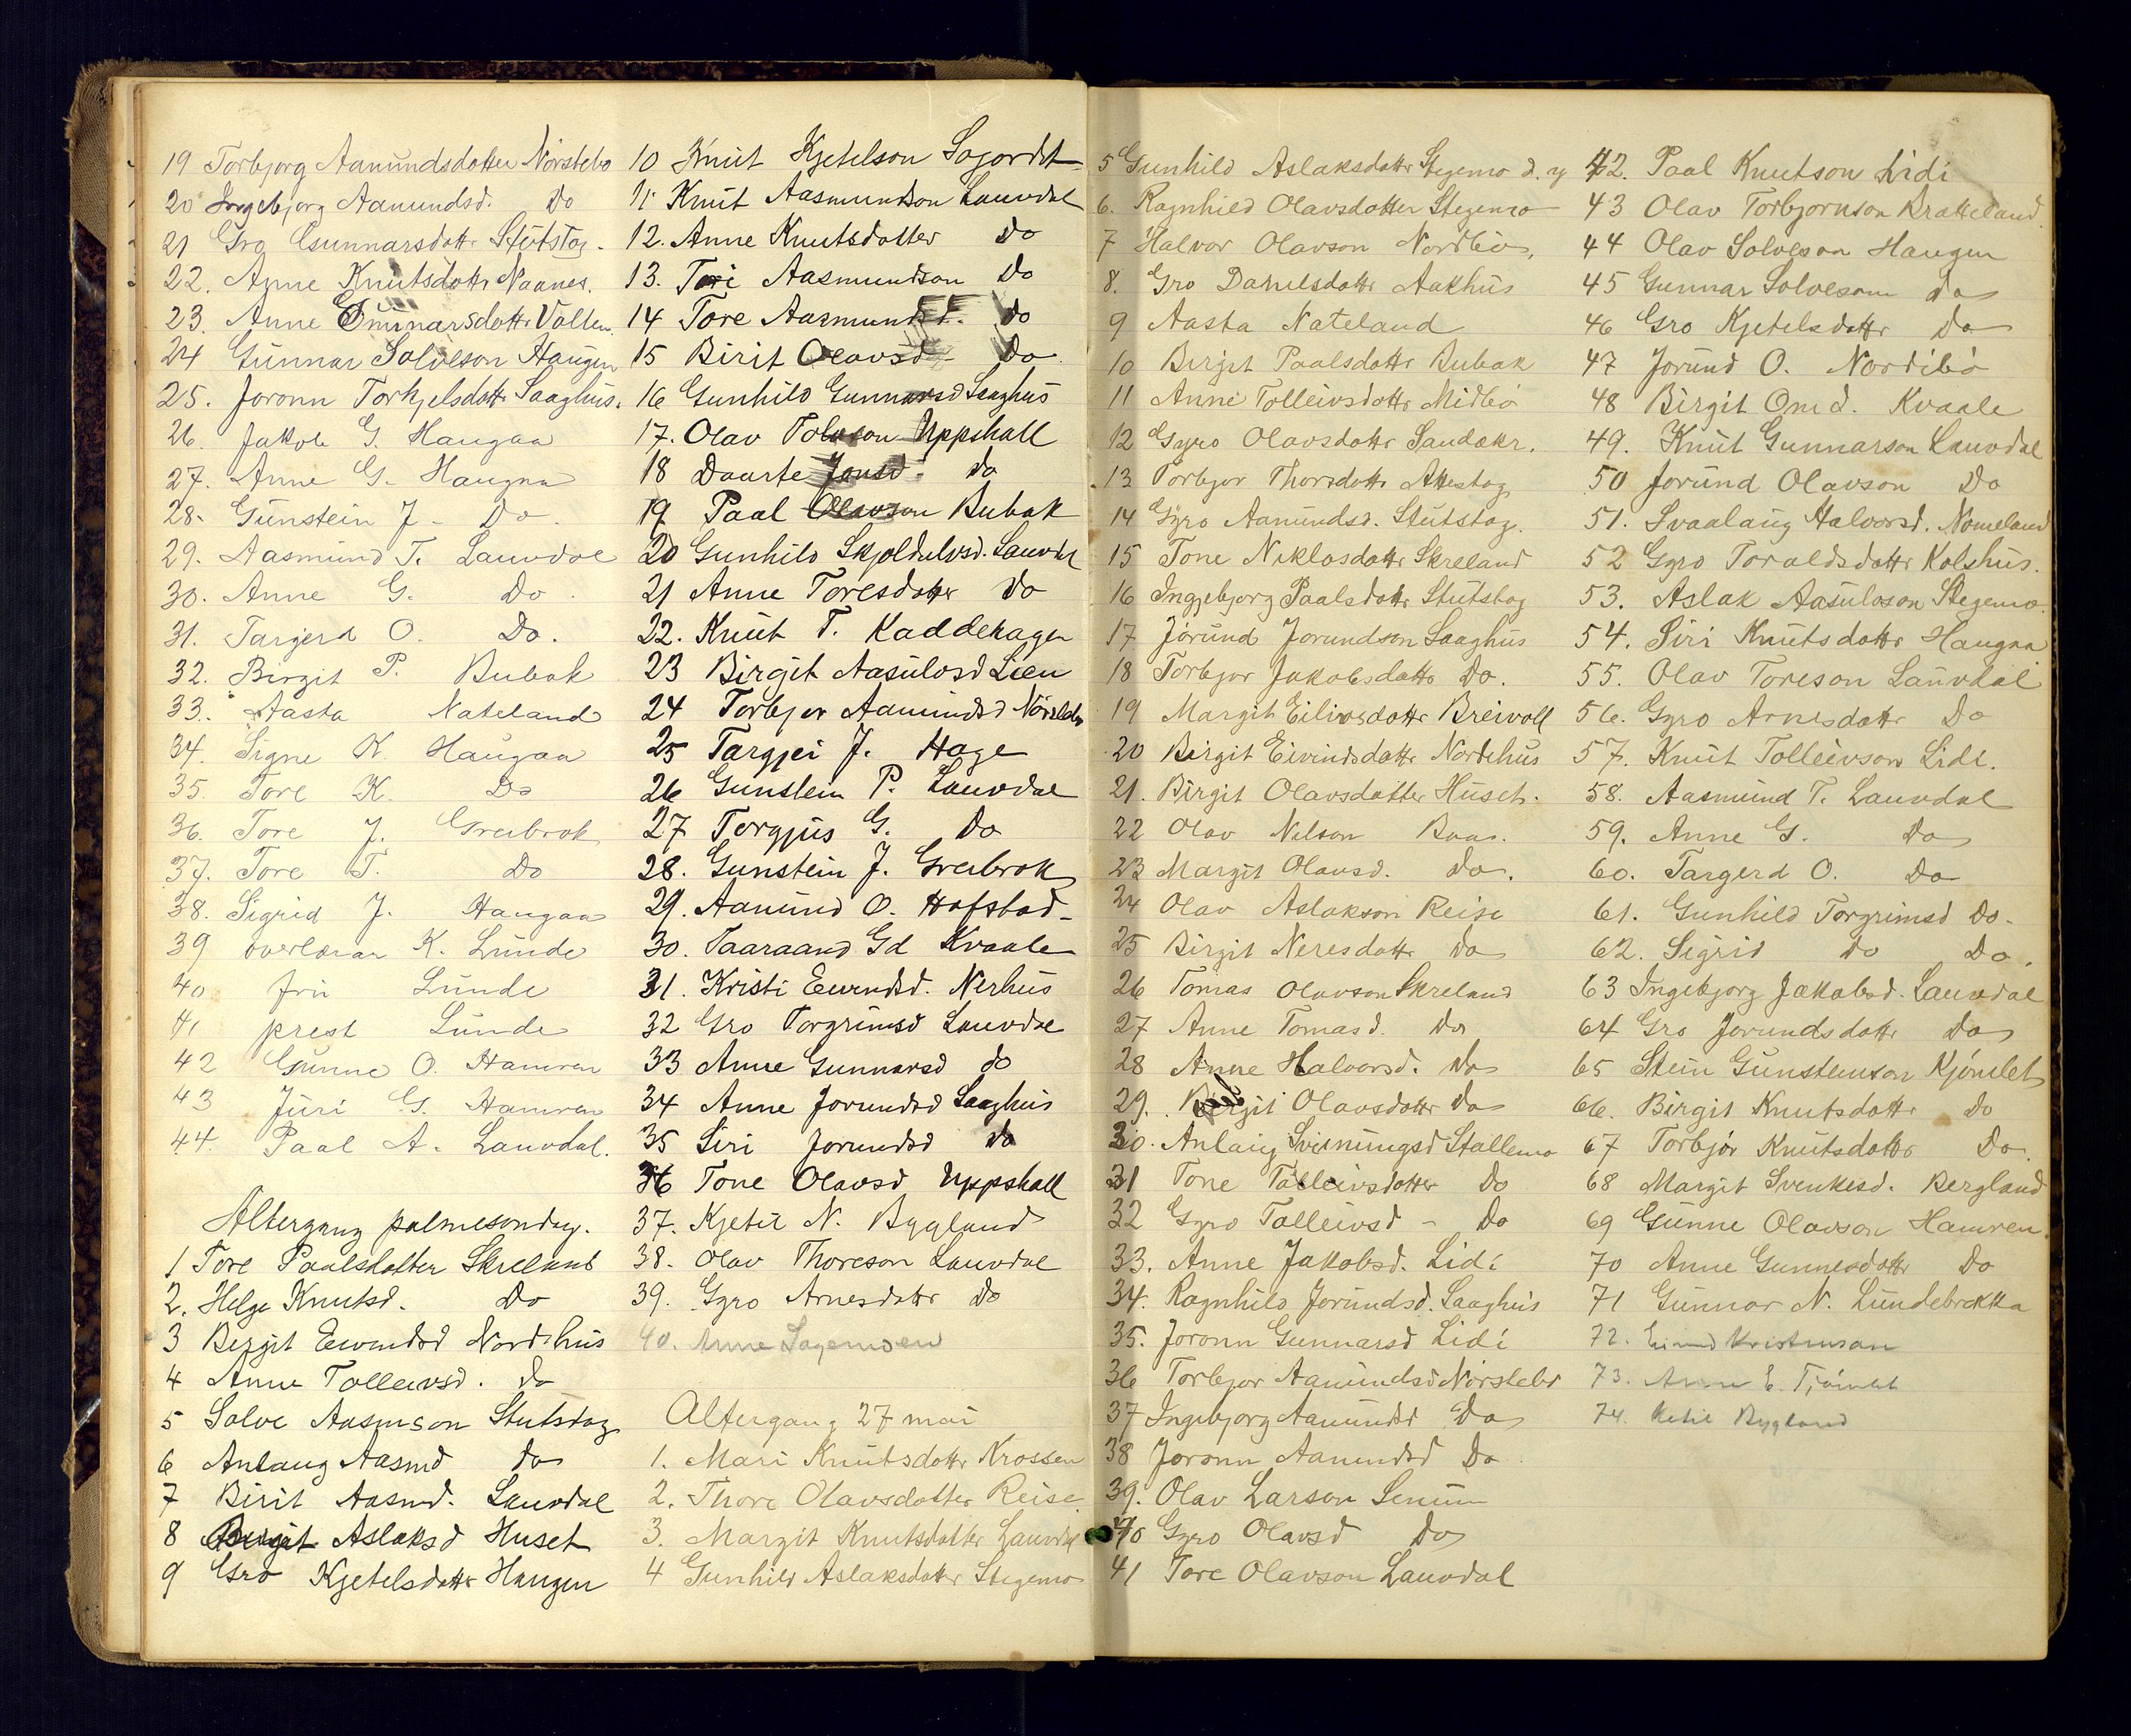 19 Torbjorg Aanundsdotter Nörstebö
20 Ingebjorg Aanundsd. Do
21 Gro Gunnarsdottr Stútstog.
22. Anne Knutsdottr Naanes.
23. Anne Gunnarsdottr Vollen.
24 Gunnar Solveson Haugen
25. Joronn Torkjelsdottr Saaghus.
26. Jakob G. Haugaa
27. Anne G. Haugaa
28. Gunstein J. Do.
29. Aasmund T. Lauvdal
30. Anne G. Do.
31. Targerd O. Do.
32. Birgit P. Bubak
33. Aasta Nateland
34. Signe K. Haugaa
35. Tore K. Do
36. Tore J. Greibrok
37. Tore T. Do
38. Sigrid J. Haugaa
39 overlærar K. Lunde
40 fru Lunde
41 prest Lunde
42 Gunne O. Hamren
43 Juri G. Hamren
44. Paal A. Lauvdal.
Altergang palmesondag.
1 Tore Paalsdotter Skreland
2. Helge Knutsd. Do
3 Bergit Eivindsd Nordihus
4 Anne Tolleivsd. do
5 Solve Aasmson Stutstog
6 Anlaug Aasmd do
7 Birit Aasmd. Lauvdal
8 Birgit Aslaksd Huset
9 Gro Kjetelsdottr Haugen
10 Knut Kjetelson Sogordet
11 Knut Aasmundson Lauvdal
12. Anne Knutsdotter do
13. Tori Aasmundson do
14 Tore Aasmundsd. do
15 Birit Olavsd Do.
16 Gunhild Gunnarsd Saaghus
17. Olav Tolvson Uppshall
18 Daarte Jonsd do
19 Paal Olavson Bubak
20 Gunhild Skjoldulvsd. Lauvdal
21 Anne Toresdotter do
22. Knut T. Kaddehagen
23 Birgit Aasulvsd Lien
24 Torbjor Aanundsd Nörstebö
25 Targjei J. Hage
26 Gunstein P. Lauvdal
27 Torgjus G. Do
28. Gunstein J. Greibrok
29. Aanund O. Hofstad
30. Taaraand Gd Kvaale
31. Kristi Eivindsd. Nerhus
32 Gro Torgrimsd Lauvdal
33 Anne Gunnarsd do
34 Anne Jorundsd Saaghus
35 Siri Jorundsd do
36 Tone Olavsd Uppshall
37. Kjetil N. Bygland
38. Olav Thoreson Lauvdal
39. Gyro Arnesdottr Do
40. Anne Lagemoen
Altergang 27 mai
1. Mari Knutsdottr Krossen
2. Thore Olavsdotter Reise.
3. Margit Knutsdotter Lauvdal
4 Gunhild Aslaksdotter Stegemo
5 Gunhild Aslaksdottr Stegemo d. y
6. Ragnhild Olavsdotter Stegemo
7 Halvor Olavson Nordbö.
8. Gro Danielsdottr Aakhus
9 Aasta Nateland
10 Birgit Paalsdottr Bubak
11 Anne Tolleivsdottr Midbö
12 Gyro Olavsdottr Sandakr.
13 Torbjor Thorsdottr Akestog
14 Gyro Aanundsd. Stutstog.
15 Tone Niklosdottr Skreland
16 Ingjebjorg Paalsdottr Stutstog
17 Jorund Jorundson Saaghus
18 Torbjor Jakobsdottr Do.
19 Margit Eilivsdottr Breivoll
20 Birgit Eivindsdottr Nordihus
21. Birgit Olavsdotter Huset.
22 Olav Nilson Baas.
23 Margit Olavsd. do.
24 Olav Aslakson Reise
25 Birgit Neresdottr do
26 Tomas Olavson Skreland
27 Anne Tomasd. do
28 Anne Halvorsd. do
29. Birgit Olavsdotter do
30. Anlaug Sveinungsd Stallemo
31 Tone Tolleivsdotter do
32 Gyro Tolleivsd - do
33. Anne Jakobsd. Lidi
34. Ragnhild Jorundsd. Saaghus
35. Joronn Gunnarsd Lidi
36 Torbjor Aanundsd Nörstebö
37 Ingebjorg Aanundsd Do
38 Joronn Aanundsd Do
39. Olav Larson Senum
40 Gyro Olavsd do
41 Tore Olavson Lauvdal
42. Paal Knutson Lidi
43 Olav Torbjornson Bratteland.
44 Olav Solveson Haugen
45 Gunnar Solveson do
46 Gro Kjetelsdottr do
47 Jorund O. Nordibö
48 Birgit Omd. Kvaale
49. Knut Gunnarson Lauvdal
50 Jorund Olavson Do
51. Svaalaug Halvorsd. Nomeland
52 Gyro Toraldsdottr Kolshus.
53. Aslak Aasulvson Stegemo.
54. Siri Knutsdottr Haugaa
55. Olav Toreson Lauvdal
56. Gyro Arnesdottr Do
57. Knut Tolleivson Lidi.
58. Aasmund T. Lauvdal
59. Anne G. Do
60. Targerd O. Do
61. Gunhild Torgrimsd Do.
62. Sigrid do Do.
63 Ingebjorg Jakobsd. Lauvdal
64 Gro Jorundsdottr Do
65 Stein Gunsteinson Kjömlet
66. Birgit Knutsdottr do
67 Torbjör Knutsdottr Do.
68 Margit Svenkesd. Bergland
69 Gunne Olavson Hamren.
70 Anne Gunnesdottr Do
71 Gunnar N. Lundebrekka
72. Eivind Kristenson
73. Anne E. Tjömlet
74. Ketil Bygland